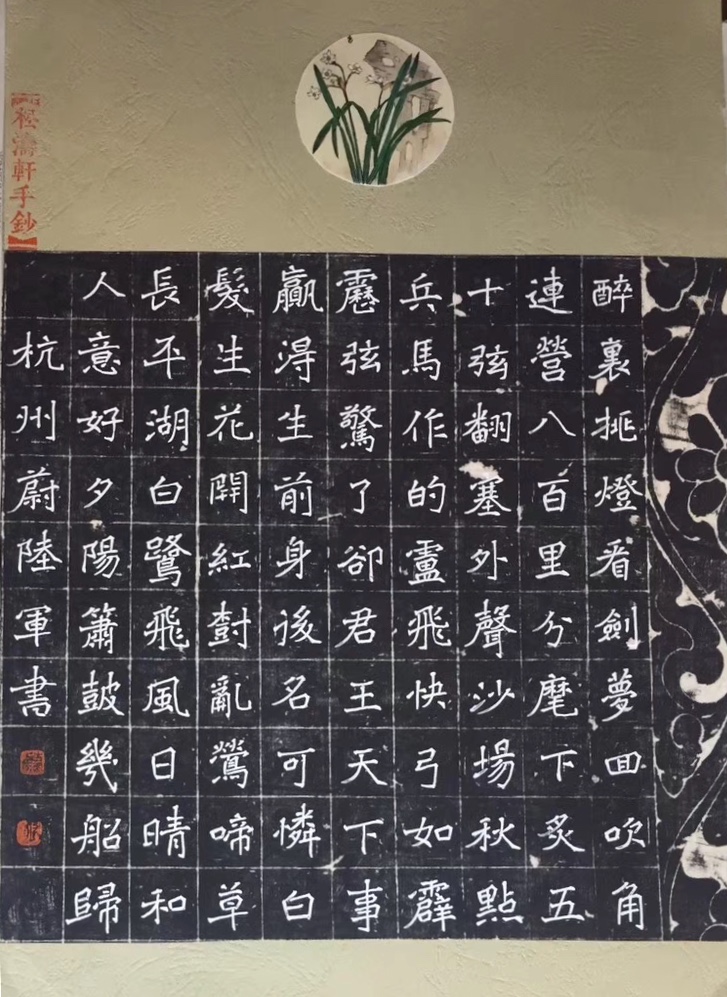 醉裏挑燈看劍夢囬吹角
連營八百里分麾下炙五
十弦翻塞外聲沙場秋點
兵馬作的盧飛快弓如霹
靂弦驚了卻君王天下事
贏得生前身後名可憐白
髮生花開紅樹亂鶯啼草
長平湖白鷺飛風日晴和
人意好夕陽簫鼓幾船歸
杭州蔚陸軍書
松濤軒手鈔